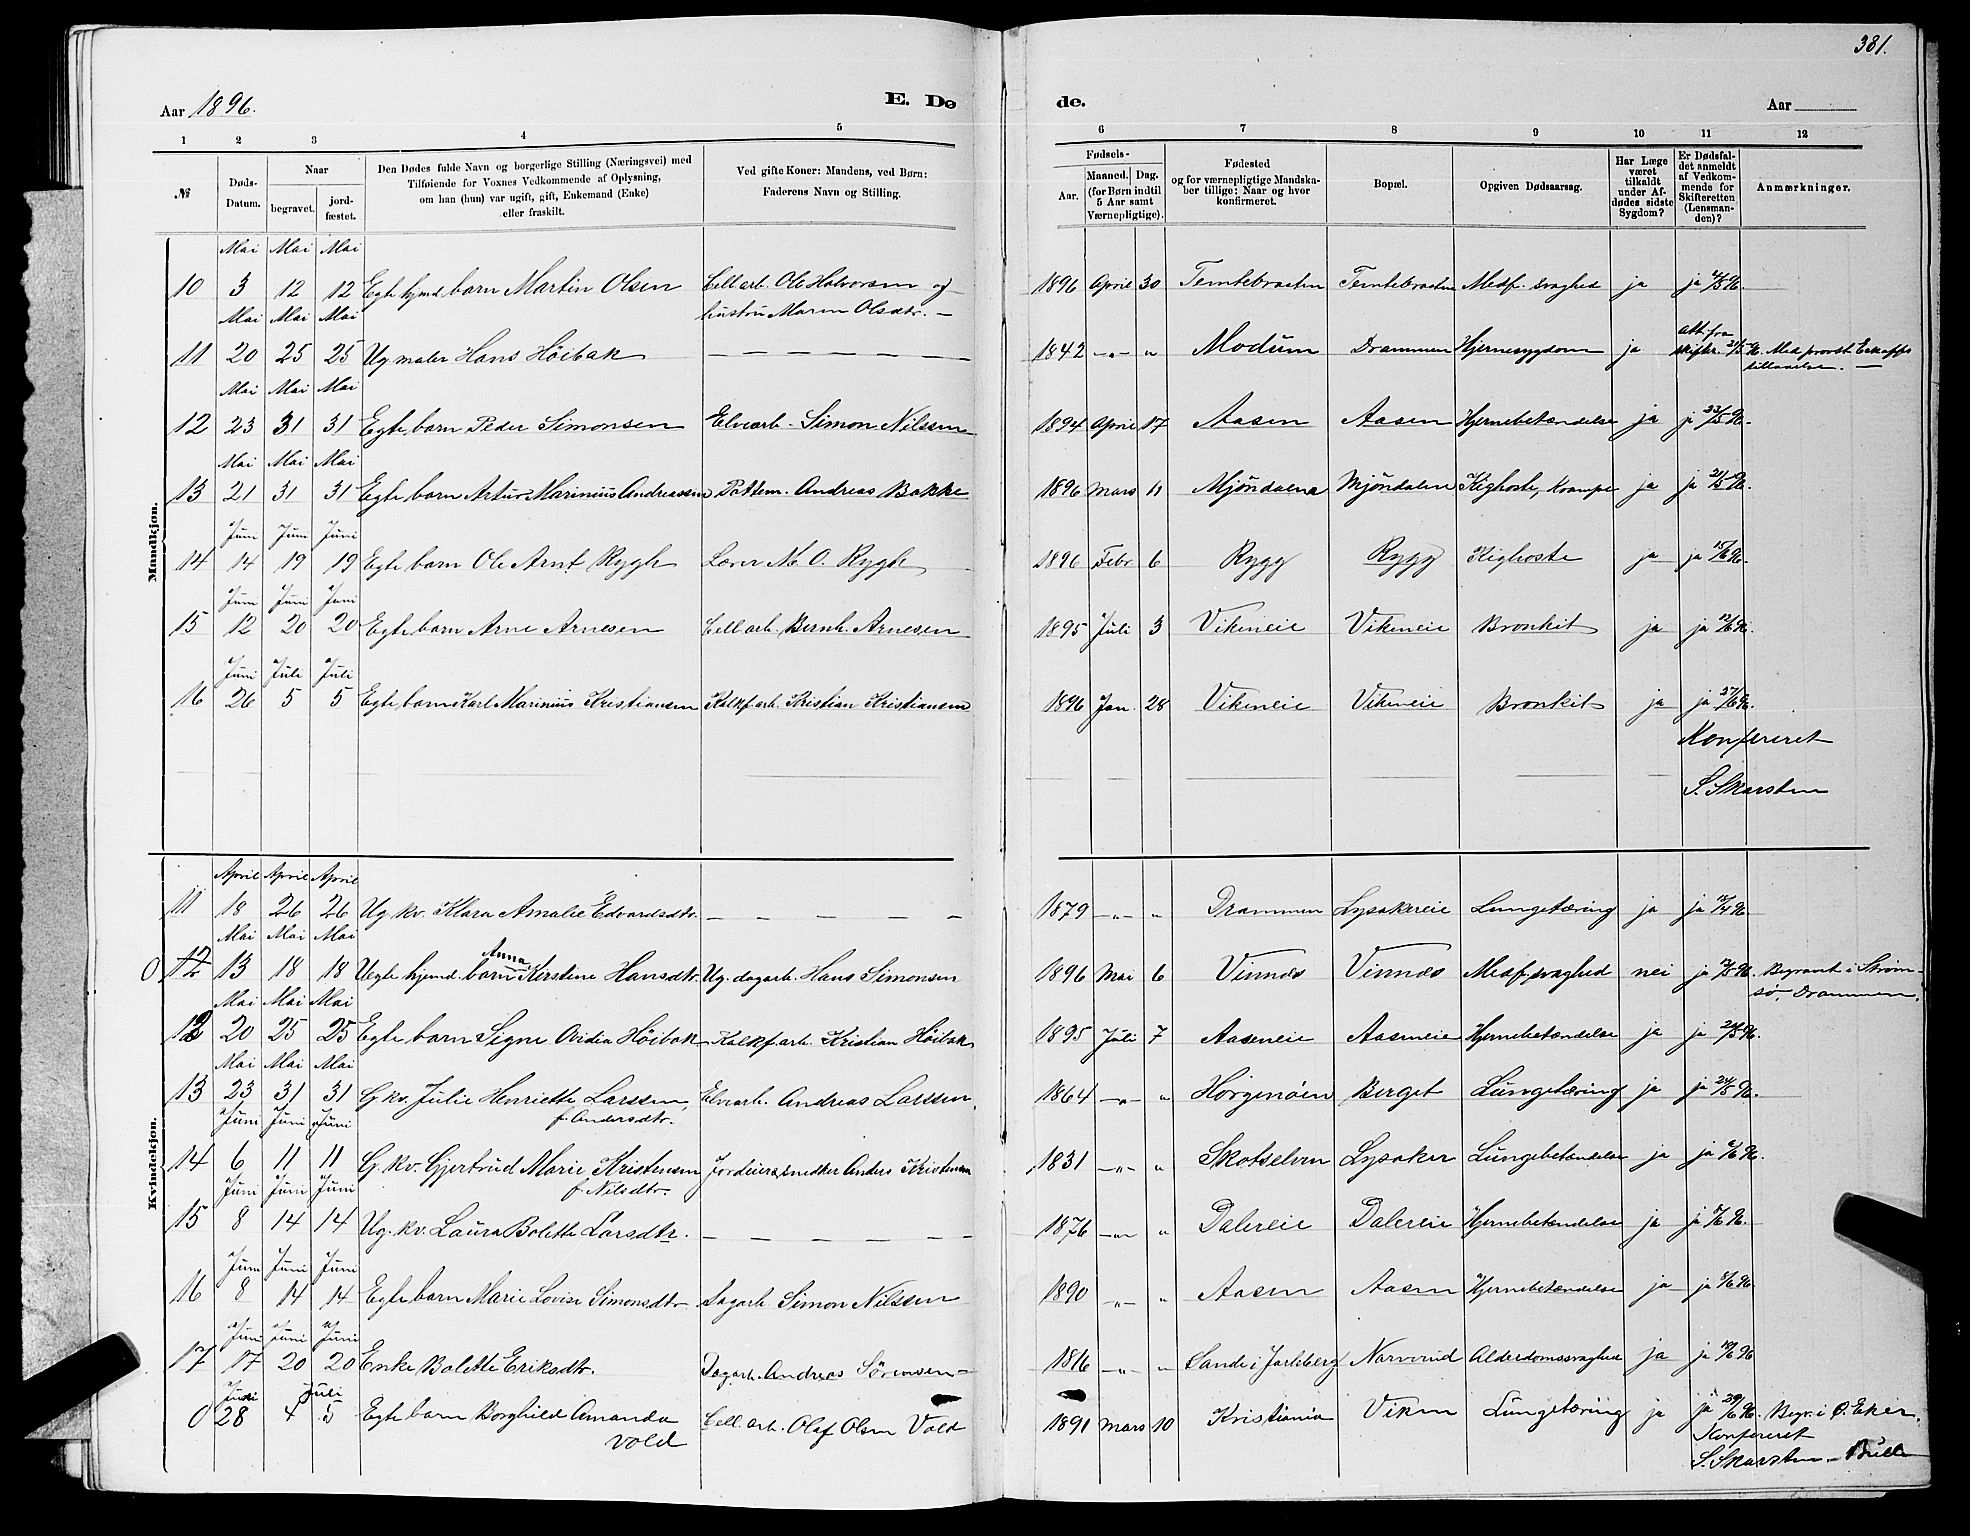 381.
Aar 1896. E. Dø de. Aar
1 2 3 4 5 6 7 8 9 10 11 12
№
Døds-Datum.
Naar
begravet.
jord-fæstet.
Den Dødes fulde Navn og borgerlige Stilling (Næringsvei) med
Tilføiende for Voxnes Vedkommende af Oplysning,
om han (hun) var ugift, gift, Enkemand (Enke)
eller fraskilt.
Ved gifte Koner: Mandens, ved Børn:
Faderens Navn og Stilling.
Fødsels-
Aar.
Maaned. Dag.
(for Børn indtil
5 Aar samt
Værnepligtige).
Fødested
og for værnepligtige Mandska-
ber tillige: Naar og hvor
konfirmeret.
Bopæl.
Opgiven Dødsaarsag.
Har Læge
været
tilkaldt
under Af-
dødes sidste
Sygdom?
Er Dødsfal-
det anmeldt
af Vedkom-
mende for
Skifteretten
(Lensman-
den)?
Anmærkninger.
Mandkjøn.
Mai Mai Mai
10 3 12 12 Egte hjmd. barn Martin Olsen Cell arb. Ole Halvorsen og 1896 April 30 Temtebraaten Temtebraaten Medf. svaghed ja ja 4/5 96.
hustru Maren Olsdtr. —
Mai Mai Mai
11 20 25 25 Ug. maler Hans Höibak — — — — — 1842 —„— „ Modum Drammen Hjernesygdom ja att. fra skifter. 21/5 96. Med provst Eckhoffs
tilladelse. —
Mai Mai Mai
12 23 31 31 Egte barn Peder Simonsen Elvearb. Simon Nilssen 1894 April 17 Aasen Aasen Hjernebetændelse ja ja 23/5 96.
Mai Mai Mai
13 21 31 31 Egte barn Artur Marinius Andreassen Pottem. Andreas Bakke 1896 Mars 11 Mjöndalen Mjöndalen Kighoste, Krampe ja ja 21/5 96.
Juni Juni Juni
14 14 19 19 Egte barn Ole Arnt Rygh Lærer M. O. Rygh 1896 Febr 6 Rygg Rygg Kighoste ja ja 15/6 96.
Juni Juni Juni
15 12 20 20 Egte barn Arne Arnesen Cell arb. Bernh. Arnesen 1895 Juli 3 Vikeneie Vikeneie Bronkit ja ja 12/6 96.
Juni Juli Juli
16 26 5 5 Egte barn Karl Marinius Kristiansen Kalkf. arb. Kristian Kristiansen 1896 Jan. 28 Vikeneie Vikeneie Bronkit ja ja 27/6 96.
Konfereret
S. Skarsten
Kvindekjøn.
April April April
11 18 26 26 Ug. kv. Klara Amalie Edvardsdtr. — — — — — 1879 —„— „ Drammen Lysakereie Lungetæring ja ja 18/4 96
Mai Mai Mai
Anna
0 12 13 18 18 Uegte hjemd. barn Kerstine Hansdtr. Ug. dagarb. Hans Simonsen 1896 Mai 6 Vinnæs Vinnæs Medf. svaghed nei ja 96. Begravet i Strøm-
sø, Drammen.
Mai Mai Mai
12 20 25 25 Egte barn Signe Ovidia Höibak Kalkf. arb. Kristian Höibak 1895 Juli 7 Aaseneie Aaseneie Hjernebetændelse ja ja 96.
Mai Mai Mai
13 23 31 31 G. kv. Julie Henriette Larssen, Elvearb. Andreas Larssen. 1864 —„— „ Horgenöien Berget Lungetæring ja ja 24/5 96.
f. Andersdtr.
Juni Juni Juni
14 6 11 11 G. kv. Gjertrud Marie Kristensen Jordeier & snedker Anders Kristensen 1831 —„— „ Skotselven Lysaker Lungebetændelse ja ja 96.
f. Nilsdtr.
Juni Juni Juni
15 8 14 14 Ug. kv. Laura Bolette Larsdtr. — — — — — 1876 —„— „ Dalereie Dalereie Hjernebetændelse ja ja 96.
Juni Juni Juni
16 8 14 14 Egte barn Marie Lovise Simonsdtr Dagarb. Simon Nilssen 1890 —„— „ Aasen Aasen Hjernebetændelse ja ja 8/6 96.
Juni Juni Juni
17 17 20 20 Enke Bolette Eriksdtr. Dagarb. Andreas Sörensen 1816 —„— „ Sande i Jarlsberg Narverud Alderdomssvaghed ja ja 96
Juni Juli
0 28 4 5 Egte barn Borghild Amanda Cell. arb. Olaf Olsen Vold 1891 Mars 10 Kristiania Viken Lungetæring ja ja 29/6 96. Begr. i Ø. Eker.
Vold
Konfereret
S. Skarsten